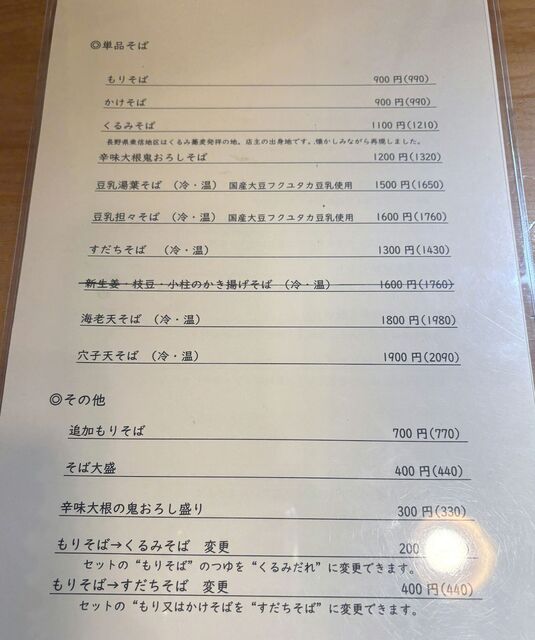 ◎単品そば
もりそば 900円(990)
かけそば 900円(990)
くるみそば 1100円(1210)
長野県東信地区はくるみ蕎麦発祥の地。店主の出身地です。懐かしみながら再現しました。
辛味大根鬼おろしそば 1200円(1320)
豆乳湯葉そば (冷・温) 国産大豆フクユタカ豆乳使用 1500円(1650)
豆乳担々そば (冷・温) 国産大豆フクユタカ豆乳使用 1600円(1760)
すだちそば (冷・温) 1300円(1430)
新生姜・枝豆・小柱のかき揚げそば (冷・温) 1600円(1760)
海老天そば (冷・温) 1800円(1980)
穴子天そば (冷・温) 1900円(2090)
◎その他
追加もりそば 700円(770)
そば大盛 400円(440)
辛味大根の鬼おろし盛り 300円(330)
もりそば→くるみそば 変更 200
セットの“もりそば”のつゆを“くるみだれ”に変更できます。
もりそば→すだちそば 変更 400円(440)
セットの“もり又はかけそばを“すだちそば”に変更できます。